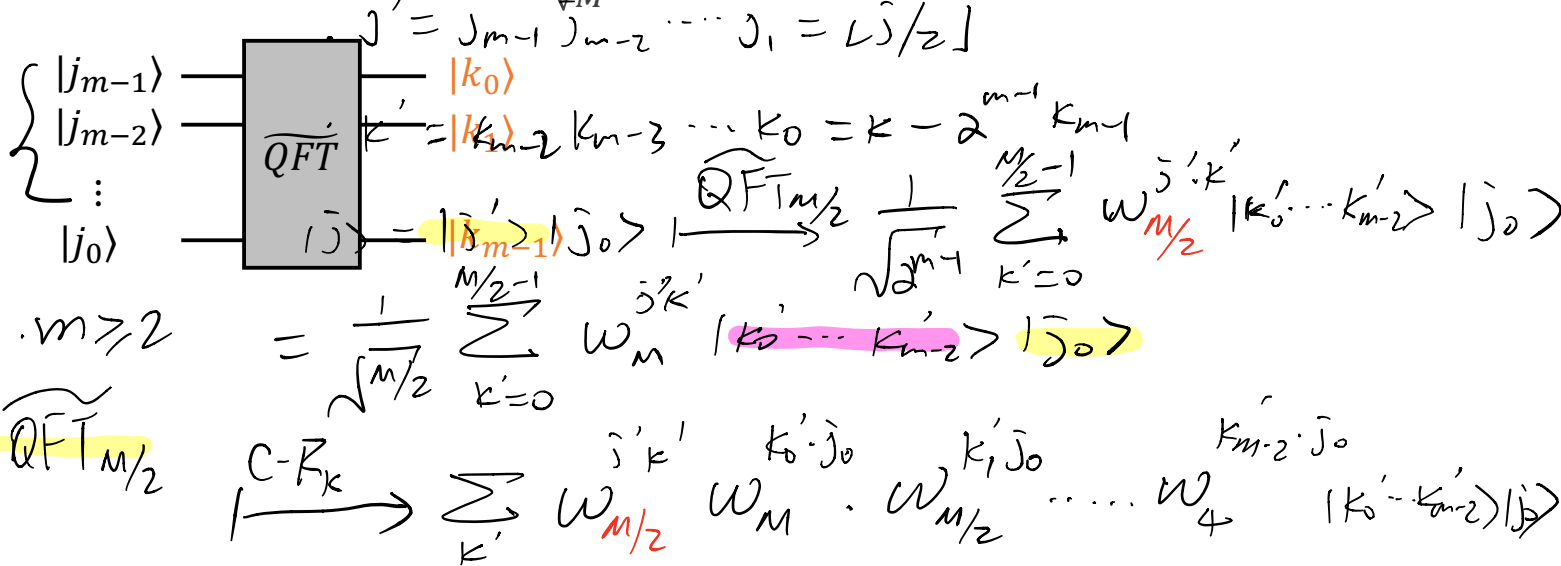 j' = j_{m-1} j_{m-2} ... j_1 = ⌊j/2⌋
|j_{m-1}⟩ |k_0⟩
|j_{m-2}⟩ |k_1⟩
k' = k_{m-2} k_{m-3} ... k_0 = k - 2^{m-1} k_{m-1}
\widetilde{QFT}
⋮
|j_0⟩ |k_{m-1}⟩
|j⟩ = |j'⟩|j_0⟩ \xmapsto{\widetilde{QFT}_{M/2}} \frac{1}{\sqrt{2^{m-1}}} \sum_{k'=0}^{M/2-1} ω_{M/2}^{j'·k'} |k_0' ... k_{m-2}'⟩ |j_0⟩
. m ≥ 2
= \frac{1}{\sqrt{M/2}} \sum_{k'=0}^{M/2-1} ω_M^{j'k'} |k_0' ... k_{m-2}'⟩ |j_0⟩
\widetilde{QFT}_{M/2}
\xmapsto{C-R_k} \sum_{k'} ω_{M/2}^{j'k'} ω_M^{k_0'·j_0} · ω_{M/2}^{k_1'j_0} ..... ω_4^{k_{m-2}'·j_0} |k_0' ... k_{m-2}'⟩|j_0⟩